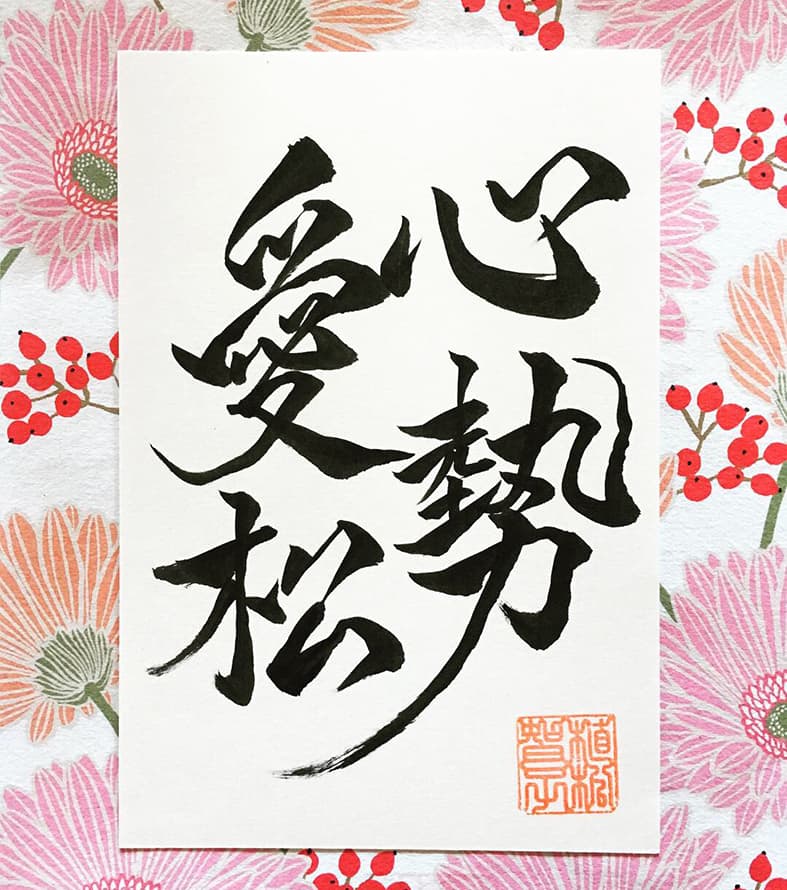 心勢
愛松
植松